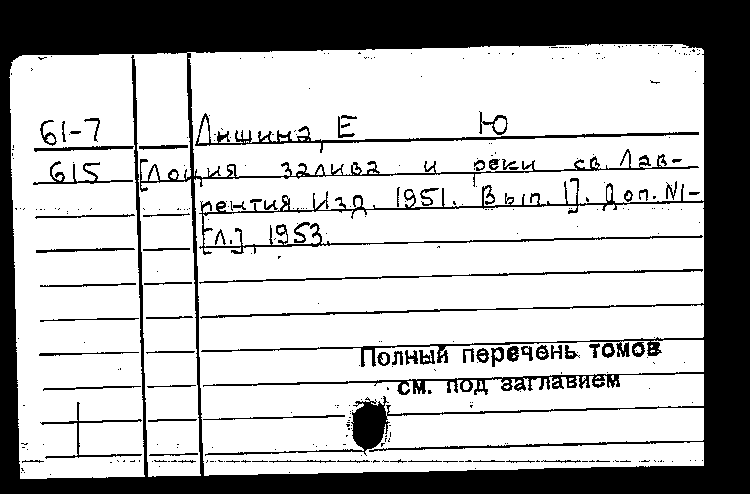 61-7 Лишина, Е Ю
615 [Лоция залива и реки св. Лав-
рентия. Изд. 1951. Вып. 1]. Доп. №1-
[Л.], 1953.
Полный перечень томов
см. под заглавием